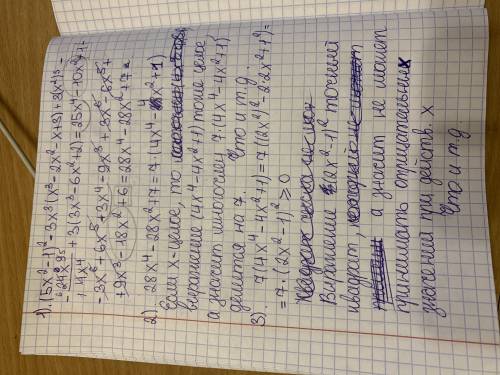 1). (5x²-1)² - 3x³(x³-2x²-x+3)+9x³+3-
+3(3x³-6x²+2)=25x⁴-10x²+1-
-3x⁶+6x⁵+3x⁴-9x³+3x⁶-6x⁵+
+9x³-18x²+6=28x⁴-28x²+7=
2) 28x⁴-28x²+7=7·(4x⁴-4x²+1)
Если x-целое, то
выражение (4x⁴-4x²+1) тоже целое,
а значит многочлен 7·(4x⁴-4x²+1)
делится на 7. Что и т.д.
3). 7(4x⁴-4x²+1)=7((2x²)²-2·2x²+1²)=
=7·(2x²-1)² ≥ 0
Выражение (2x²-1)² точный
квадрат, а значит не может
принимать отрицательных
значений при действ. x
Что и т.д